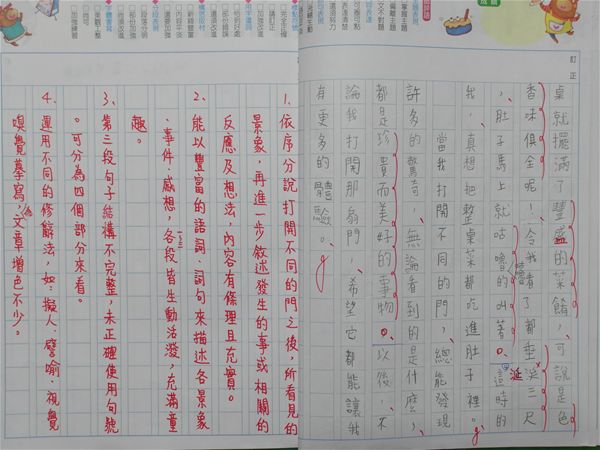 訂正
桌就擺滿了豐盛的菜餚，可說是色
香味俱全呢！令我看了都垂涎三尺
，肚子馬上就咕嚕咕嚕的叫著。這時的
我，真想把整桌菜都吃進肚子裡。
當我打開不同的門，總能發現
許多的驚奇，無論看到的是什麼，
都是珍貴而美好的事物。以後，不
論我打開那扇門，希望它都能讓我
有更多的體驗。
1、依序分說打開不同的門之後，所看見的
景象，再進一步敘述發生的事或相關的
反應及想法，內容有條理且充實。
2、能以豐富的語詞、詞句來描述各景象
、事件、感想，各段皆生動活潑，充滿童
趣。
3、第三段句子結構不完整，未正確使用句號
。可分為四個部分來看。
4、運用不同的修辭法，如：擬人、譬喻、視覺
嗅覺摹寫，為文章增色不少。